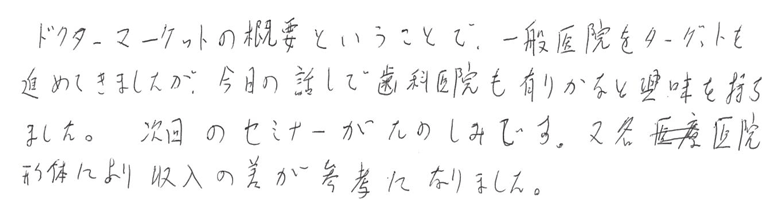 ドクターマーケットの概要ということで、一般医院をターゲットを
進めてきましたが、今日の話しで歯科医院も有りかなと興味を持ち
ました。 次回のセミナーがたのしみです。又各医院
形体により収入の差が参考になりました。